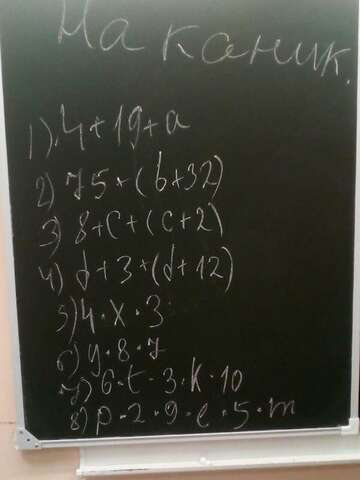 На каник.
1). 4+19+a
2) 75+(b+32)
3) 8+c+(c+2)
4) d+3+(d+12)
5) 4·x·3
6) y·8·7
7) 6·t·3·k·10
8) p·2·9·e·5·m